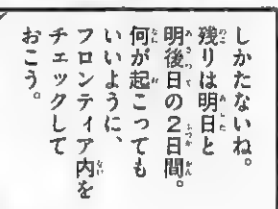 しかたないね。
残りは明日と
明後日の2日間。
何が起こっても
いいように、
フロンティア内を
チェックして
おこう。